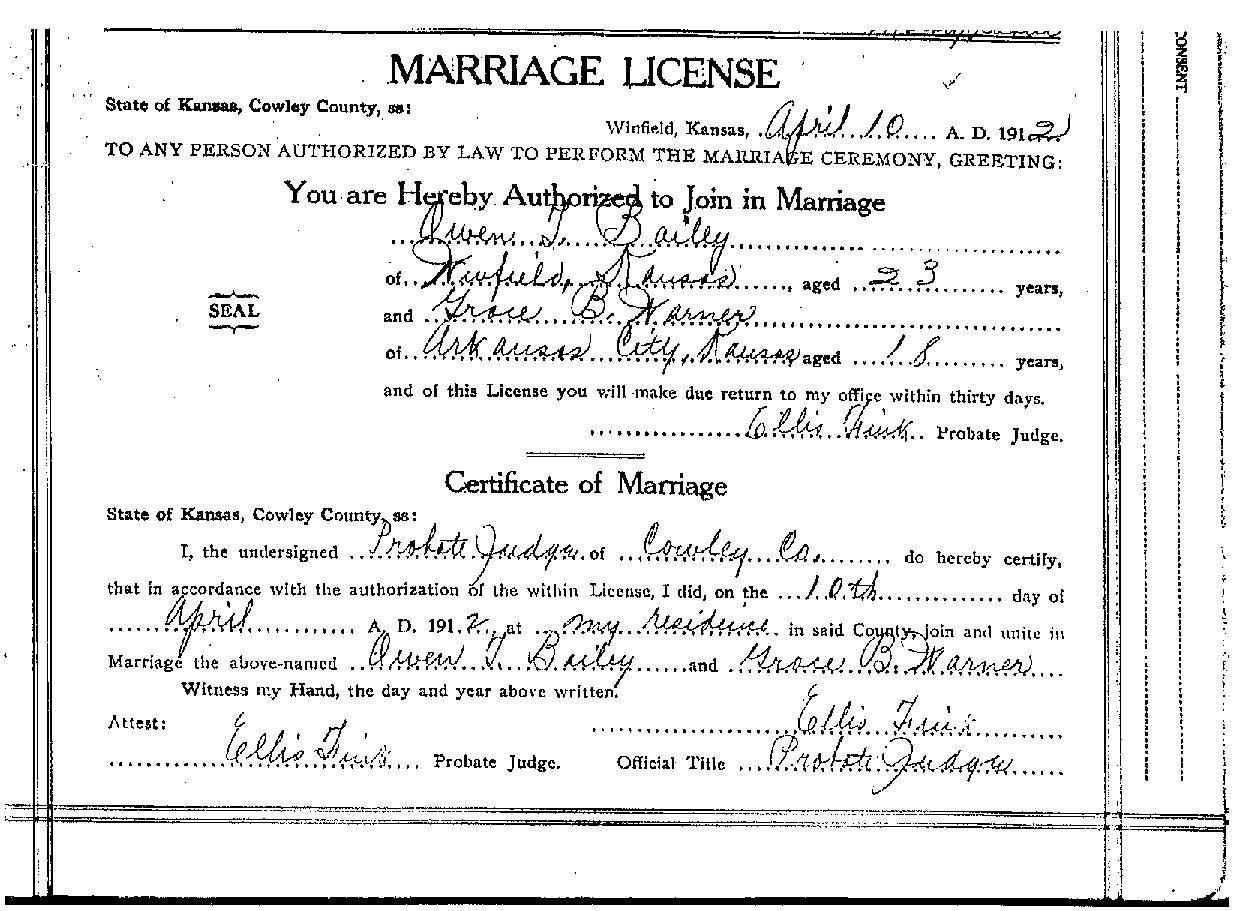 MARRIAGE LICENSE
State of Kansas, Cowley County, ss:
Winfield, Kansas, April 10 A. D. 1912
TO ANY PERSON AUTHORIZED BY LAW TO PERFORM THE MARRIAGE CEREMONY, GREETING:
You are Hereby Authorized to Join in Marriage
Owen T. Bailey
of Winfield, Kansas, aged 23 years,
SEAL
and Grace B. Warner
of Arkansas City, Kansas aged 18 years,
and of this License you will make due return to my office within thirty days.
Ellis Fink Probate Judge.
Certificate of Marriage
State of Kansas, Cowley County, ss:
I, the undersigned Probate Judge of Cowley Co. do hereby certify,
that in accordance with the authorization of the within License, I did, on the 10th day of
April A. D. 1912, at my residence in said County, join and unite in
Marriage the above-named Owen T. Bailey and Grace B. Warner
Witness my Hand, the day and year above written.
Attest: Ellis Fink
Ellis Fink Probate Judge. Official Title Probate Judge
CONSENT